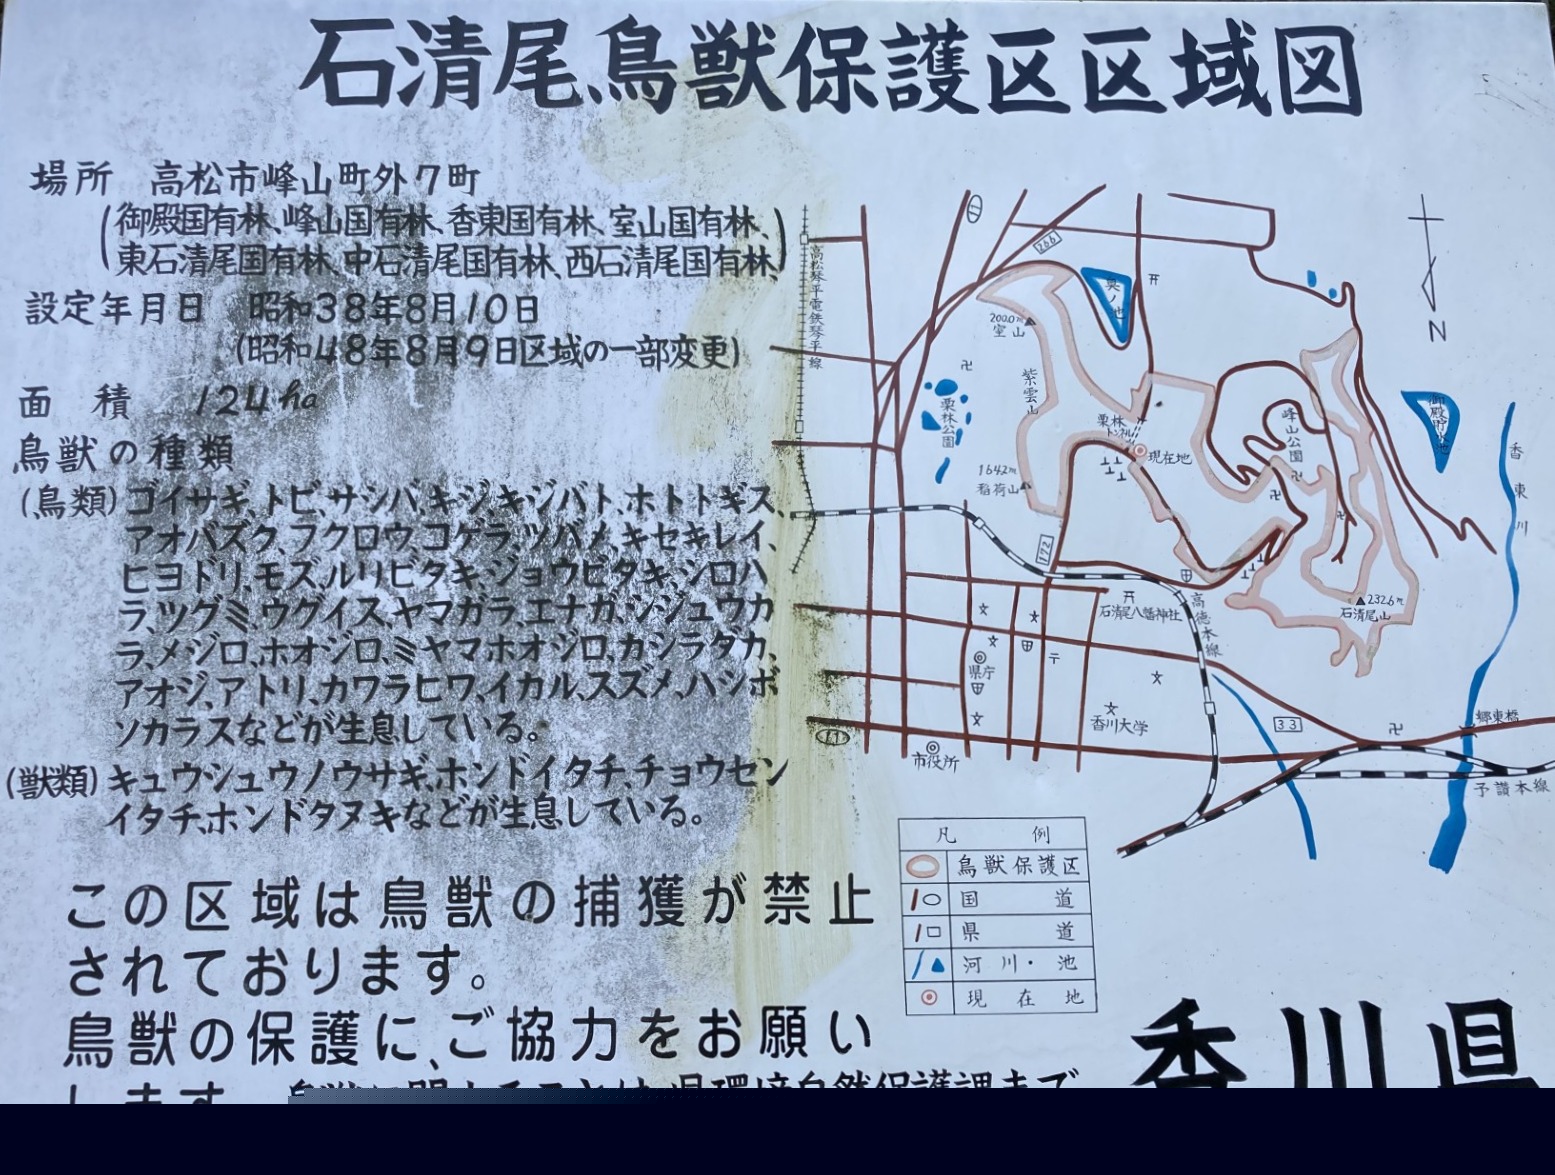 石清尾鳥獣保護区区域図
場所 高松市峰山町外7町
(御殿国有林、峰山国有林、香東国有林、室山国有林、
東石清尾国有林、中石清尾国有林、西石清尾国有林、)
設定年月日 昭和38年8月10日
(昭和48年8月9日区域の一部変更)
面積 124ha
鳥獣の種類
(鳥類)ゴイサギ、トビ、サシバ、キジ、キジバト、ホトトギス、
アオバズク、フクロウ、コゲラ、ツバメ、キセキレイ、
ヒヨドリ、モズ、ルリビタキ、ジョウビタキ、シロハ
ラ、ツグミ、ウグイス、ヤマガラ、エナガ、シジュウカ
ラ、メジロ、ホオジロ、ミヤマホオジロ、カシラダカ、
アオジ、アトリ、カワラヒワ、イカル、スズメ、ハシボ
ソカラスなどが生息している。
(獣類)キュウシュウノウサギ、ホンドイタチ、チョウセン
イタチ、ホンドタヌキなどが生息している。
この区域は鳥獣の捕獲が禁止
されております。
鳥獣の保護に、ご協力をお願い
します
高松琴平電鉄琴平線
266
奥ノ池
N
200.0m
室山
紫雲山
栗林公園
栗林
トンネル
現在地
峰山公園
御殿貯水池
香東川
164.2m
稲荷山
122
石清尾八幡神社
高徳本線
232.6m
石清尾山
県庁
香川大学
市役所
11
33
郷東橋
予讃本線
凡例
鳥獣保護区
国道
県道
河川・池
現在地
香川県